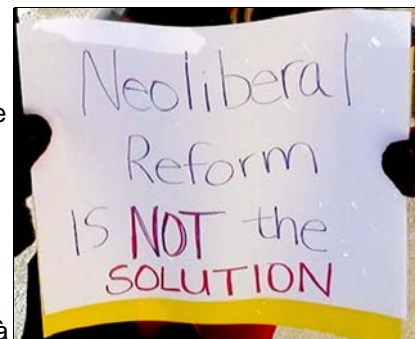 e
Neoliberal
Reform
IS NOT the
SOLUTION
à